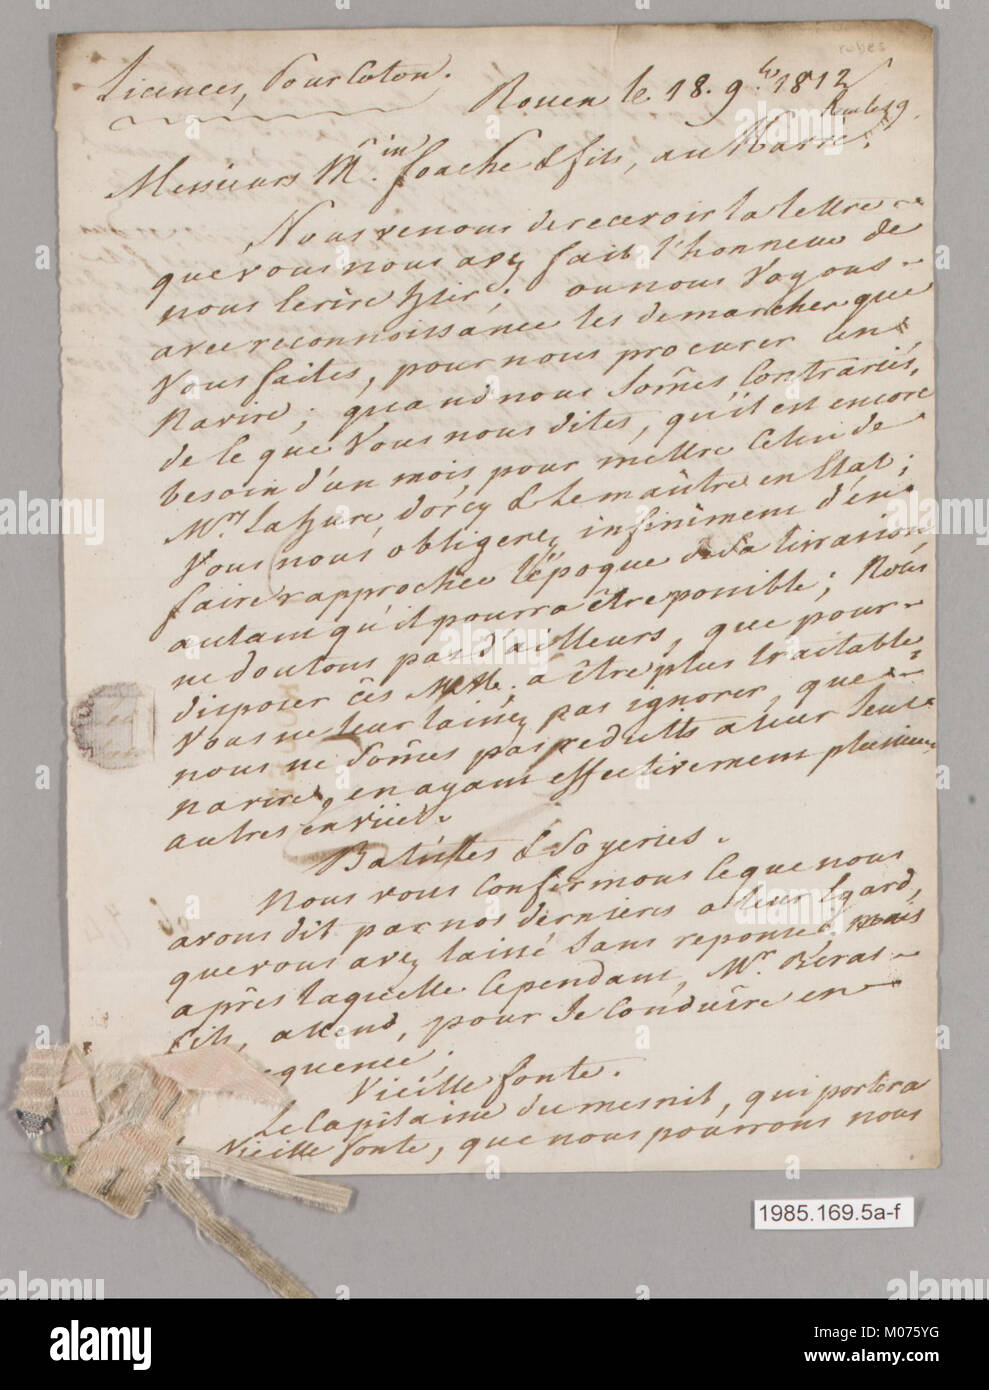 rubes
Licences, Pour Coton.
Rouen le 18. 9bre 1812
Messieurs Mtin foache & fils, au Havre.
Nous venons de recevoir la lettre
que vous nous avez fait l'honneur de
nous écrire hier; ou nous Voyons
avec reconnoissance les demarches que
Vous faites, pour nous procurer un
Navire; quand nous Somes Contrariés,
de ce que Vous nous dites, qu'il est encore
besoin d'un mois, pour mettre Celui de
Mrs. Lahure, d'orcy & Lemaître en Etat;
Vous nous obligerez infiniment d'en
faire rapprocher l'époque de Sa livraison
autant qu'il pourra être possible; Nous
ne doutons pas d'ailleurs, que pour
disposer ces a être plus traitable
Vous ne leur laissez pas ignorer, que
nous ne Somes pas reduits a leur Seul
navire, en ayant effectivement plusieurs
autres en vüe.
Batistes & Soyeries.
Nous vous Confirmons ce que nous
avons dit par nos derniers a leur Egard,
que vous avez laissé Sans reponse, mais
après laquelle Cependant, Mr. Béras
fils, attend, pour Se Conduire en
quence.
Vieille fonte.
Le Capitaine Dumesnil, qui portera
Vieille fonte, que nous pourrons nous
1985.169.5a-f
alamy
M075YG
www.alamy.com